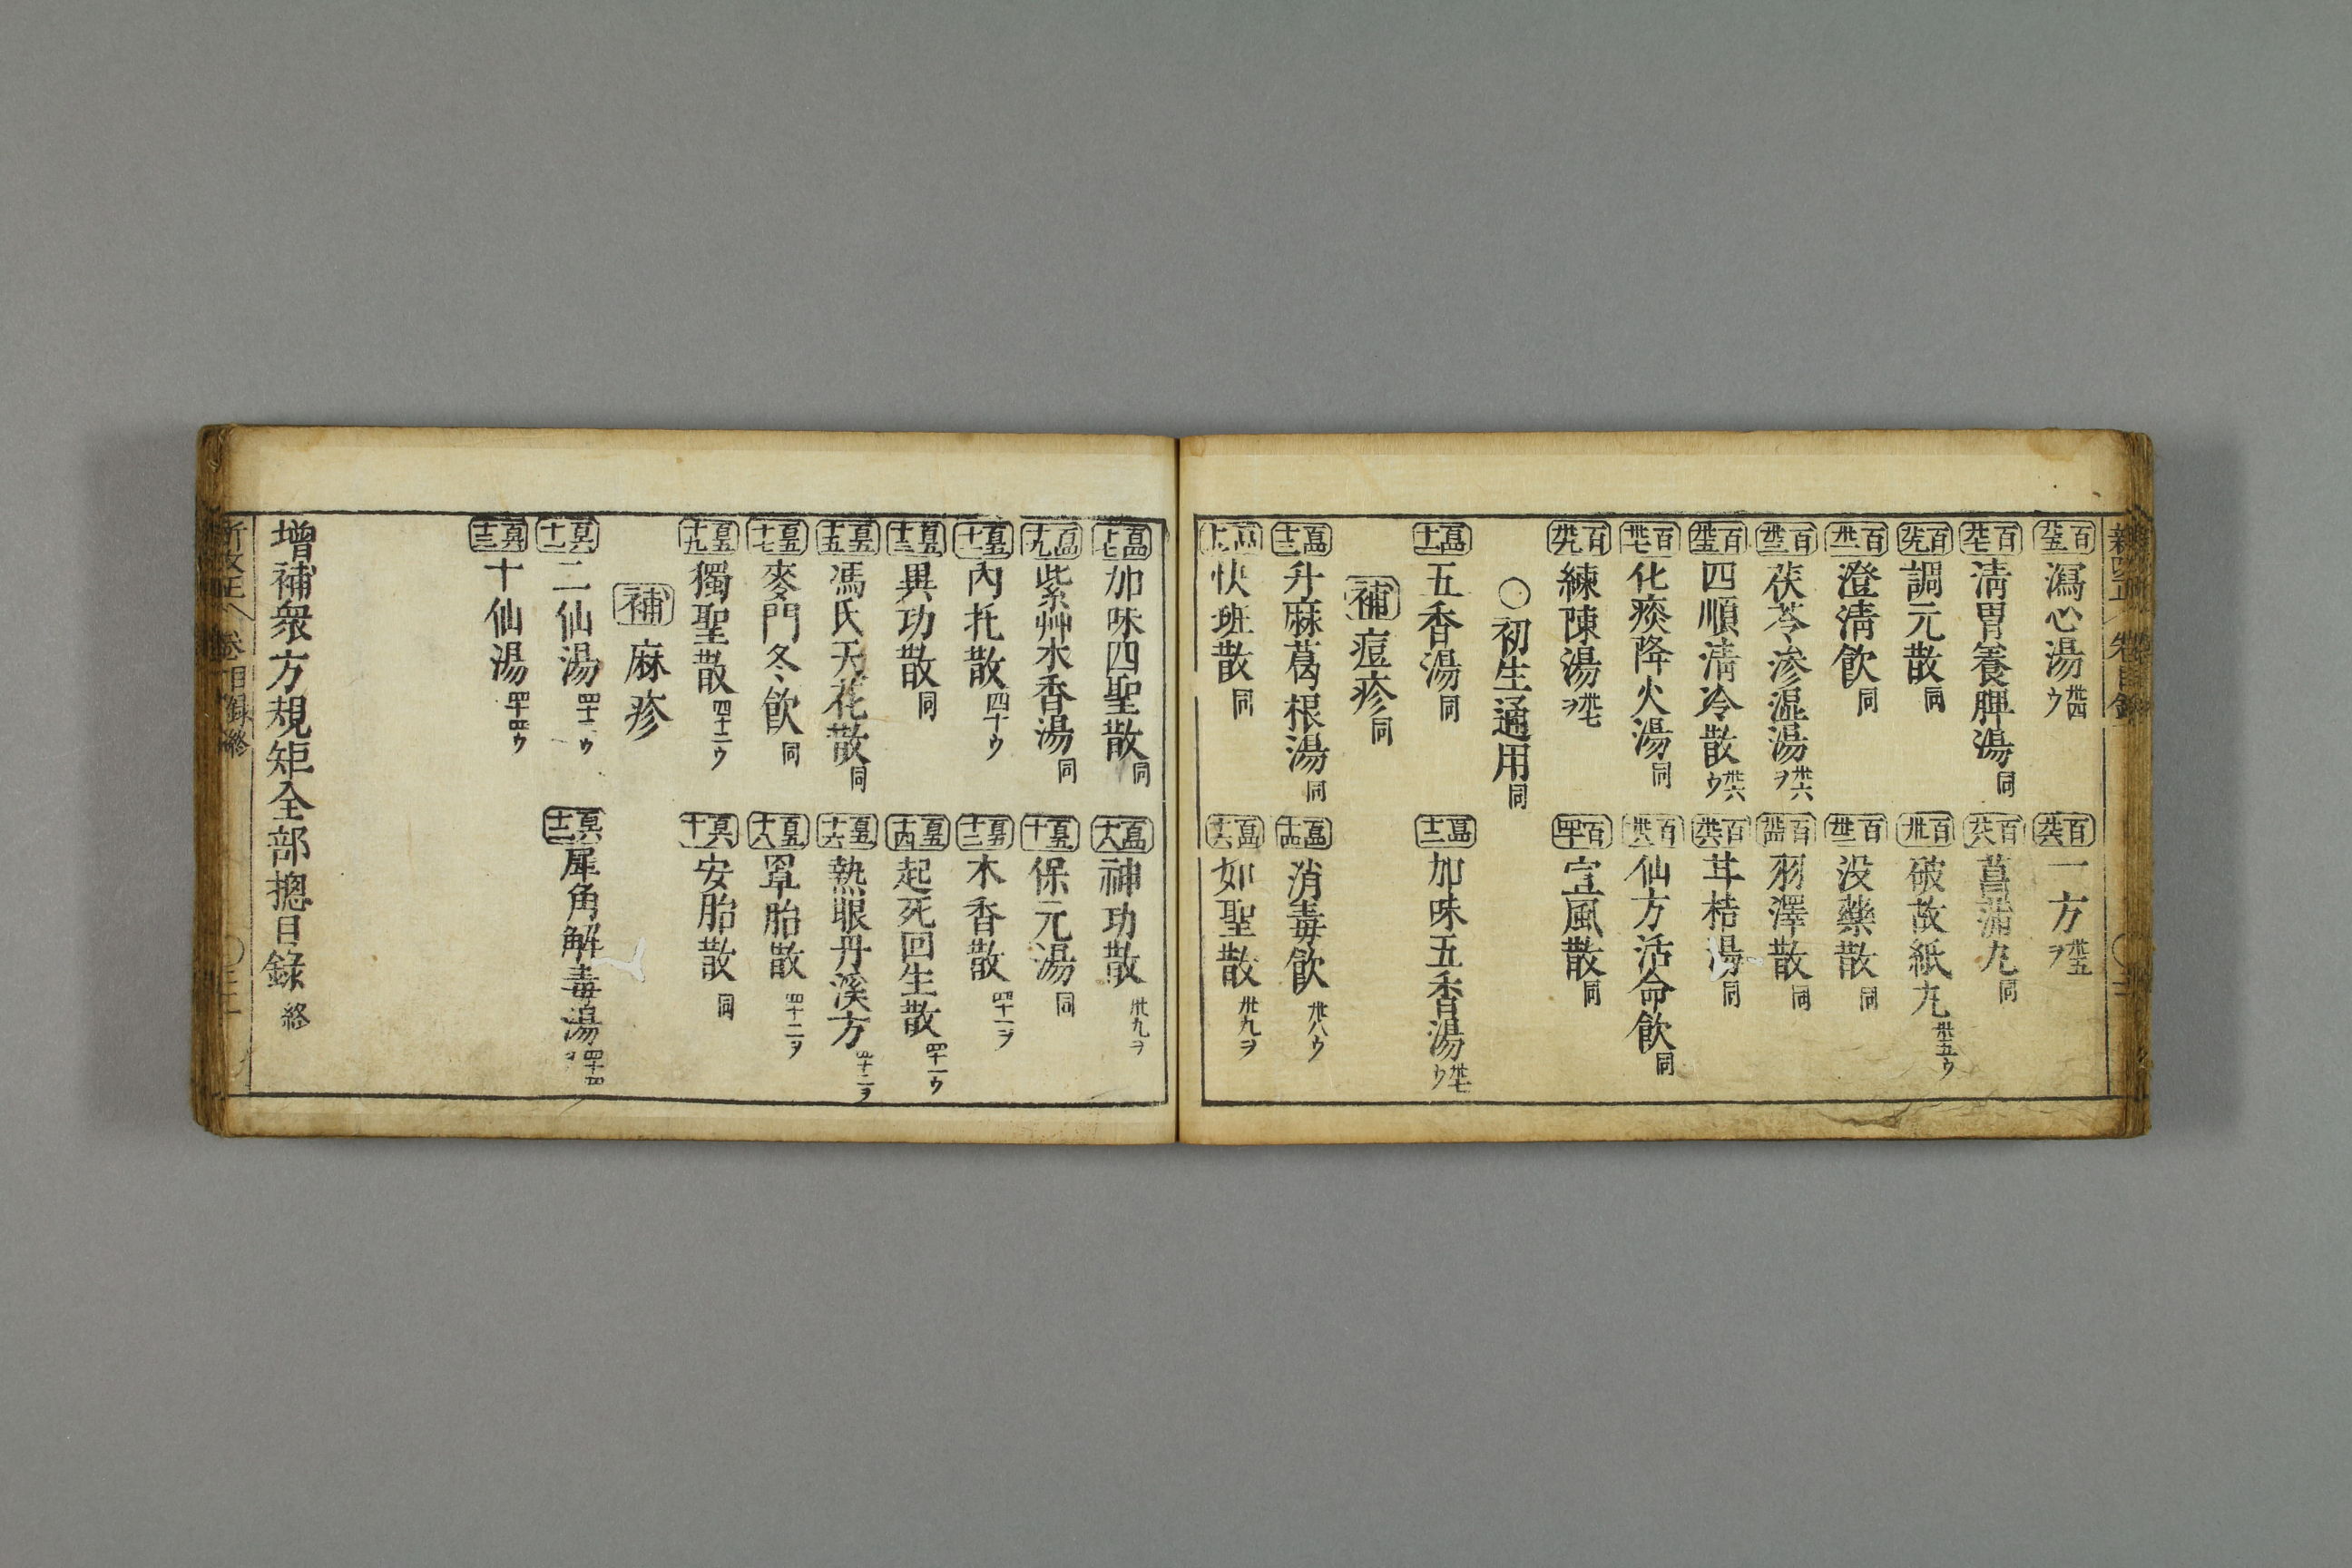 百廿五 瀉心湯 卅四ウ
百廿六 一方 卅五ヲ
百廿七 清胃養脾湯 同
百廿八 菖蒲丸 同
百廿九 調元散 同
百卅 破故紙丸 卅五ウ
百卅一 澄清飲 同
百卅二 没藥散 同
百卅三 茯苓滲湿湯 卅六ヲ
百卅四 羽澤散 同
百卅五 四順清冷散 卅六ウ
百卅六 芇桔湯 同
百卅七 化痰降火湯 同
百卅八 仙方活命飲 同
百卅九 練陳湯 卅七ヲ
百四十 宣風散 同
○初生通用 同
五香湯 同
加味五香湯 卅七ウ
補 痘疹 同
升麻葛根湯 同
消毒飲 卅八ウ
快斑散 同
如聖散 卅九ヲ
加味四聖散 同
神功散 卅九ヲ
紫艸木香湯 同
保元湯 同
內托散 四十ウ
木香散 四十一ヲ
異功散 同
起死回生散 四十一ウ
馮氏天花散 同
熱眼丹溪方 四十二ヲ
麥門冬飲 同
罩胎散 四十二ヲ
獨聖散 四十二ウ
安胎散 同
補 麻疹
二仙湯 四十三ウ
犀角解毒湯 四十四ヲ
十仙湯 四十四ウ
增補衆方規矩全部摠目録 終